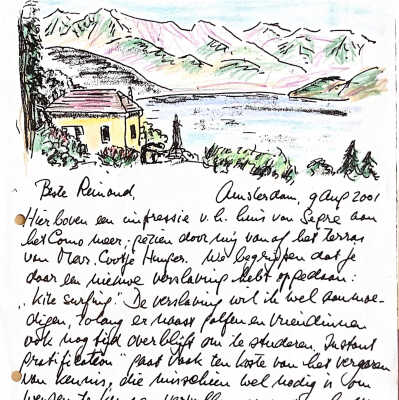 Beste Reinoud, Amsterdam, 9 Aug 2001
Hier boven een impressie v.h. huis van Sepre aan
het Como meer, gezien door mij vanaf het terras
van Mar. Cootje Huyser. We begrijpen dat je
daar een nieuwe verslaving hebt opgedaan:
"Kite surfing". De verslaving wil ik wel aanmoe-
digen, zolang er naast golfen en vriendinnen
ook nog tijd overblijft om te studeren. "Instant
gratification" gaat vaak ten koste van het vergaren
van kennis, die misschien wel nodig is om